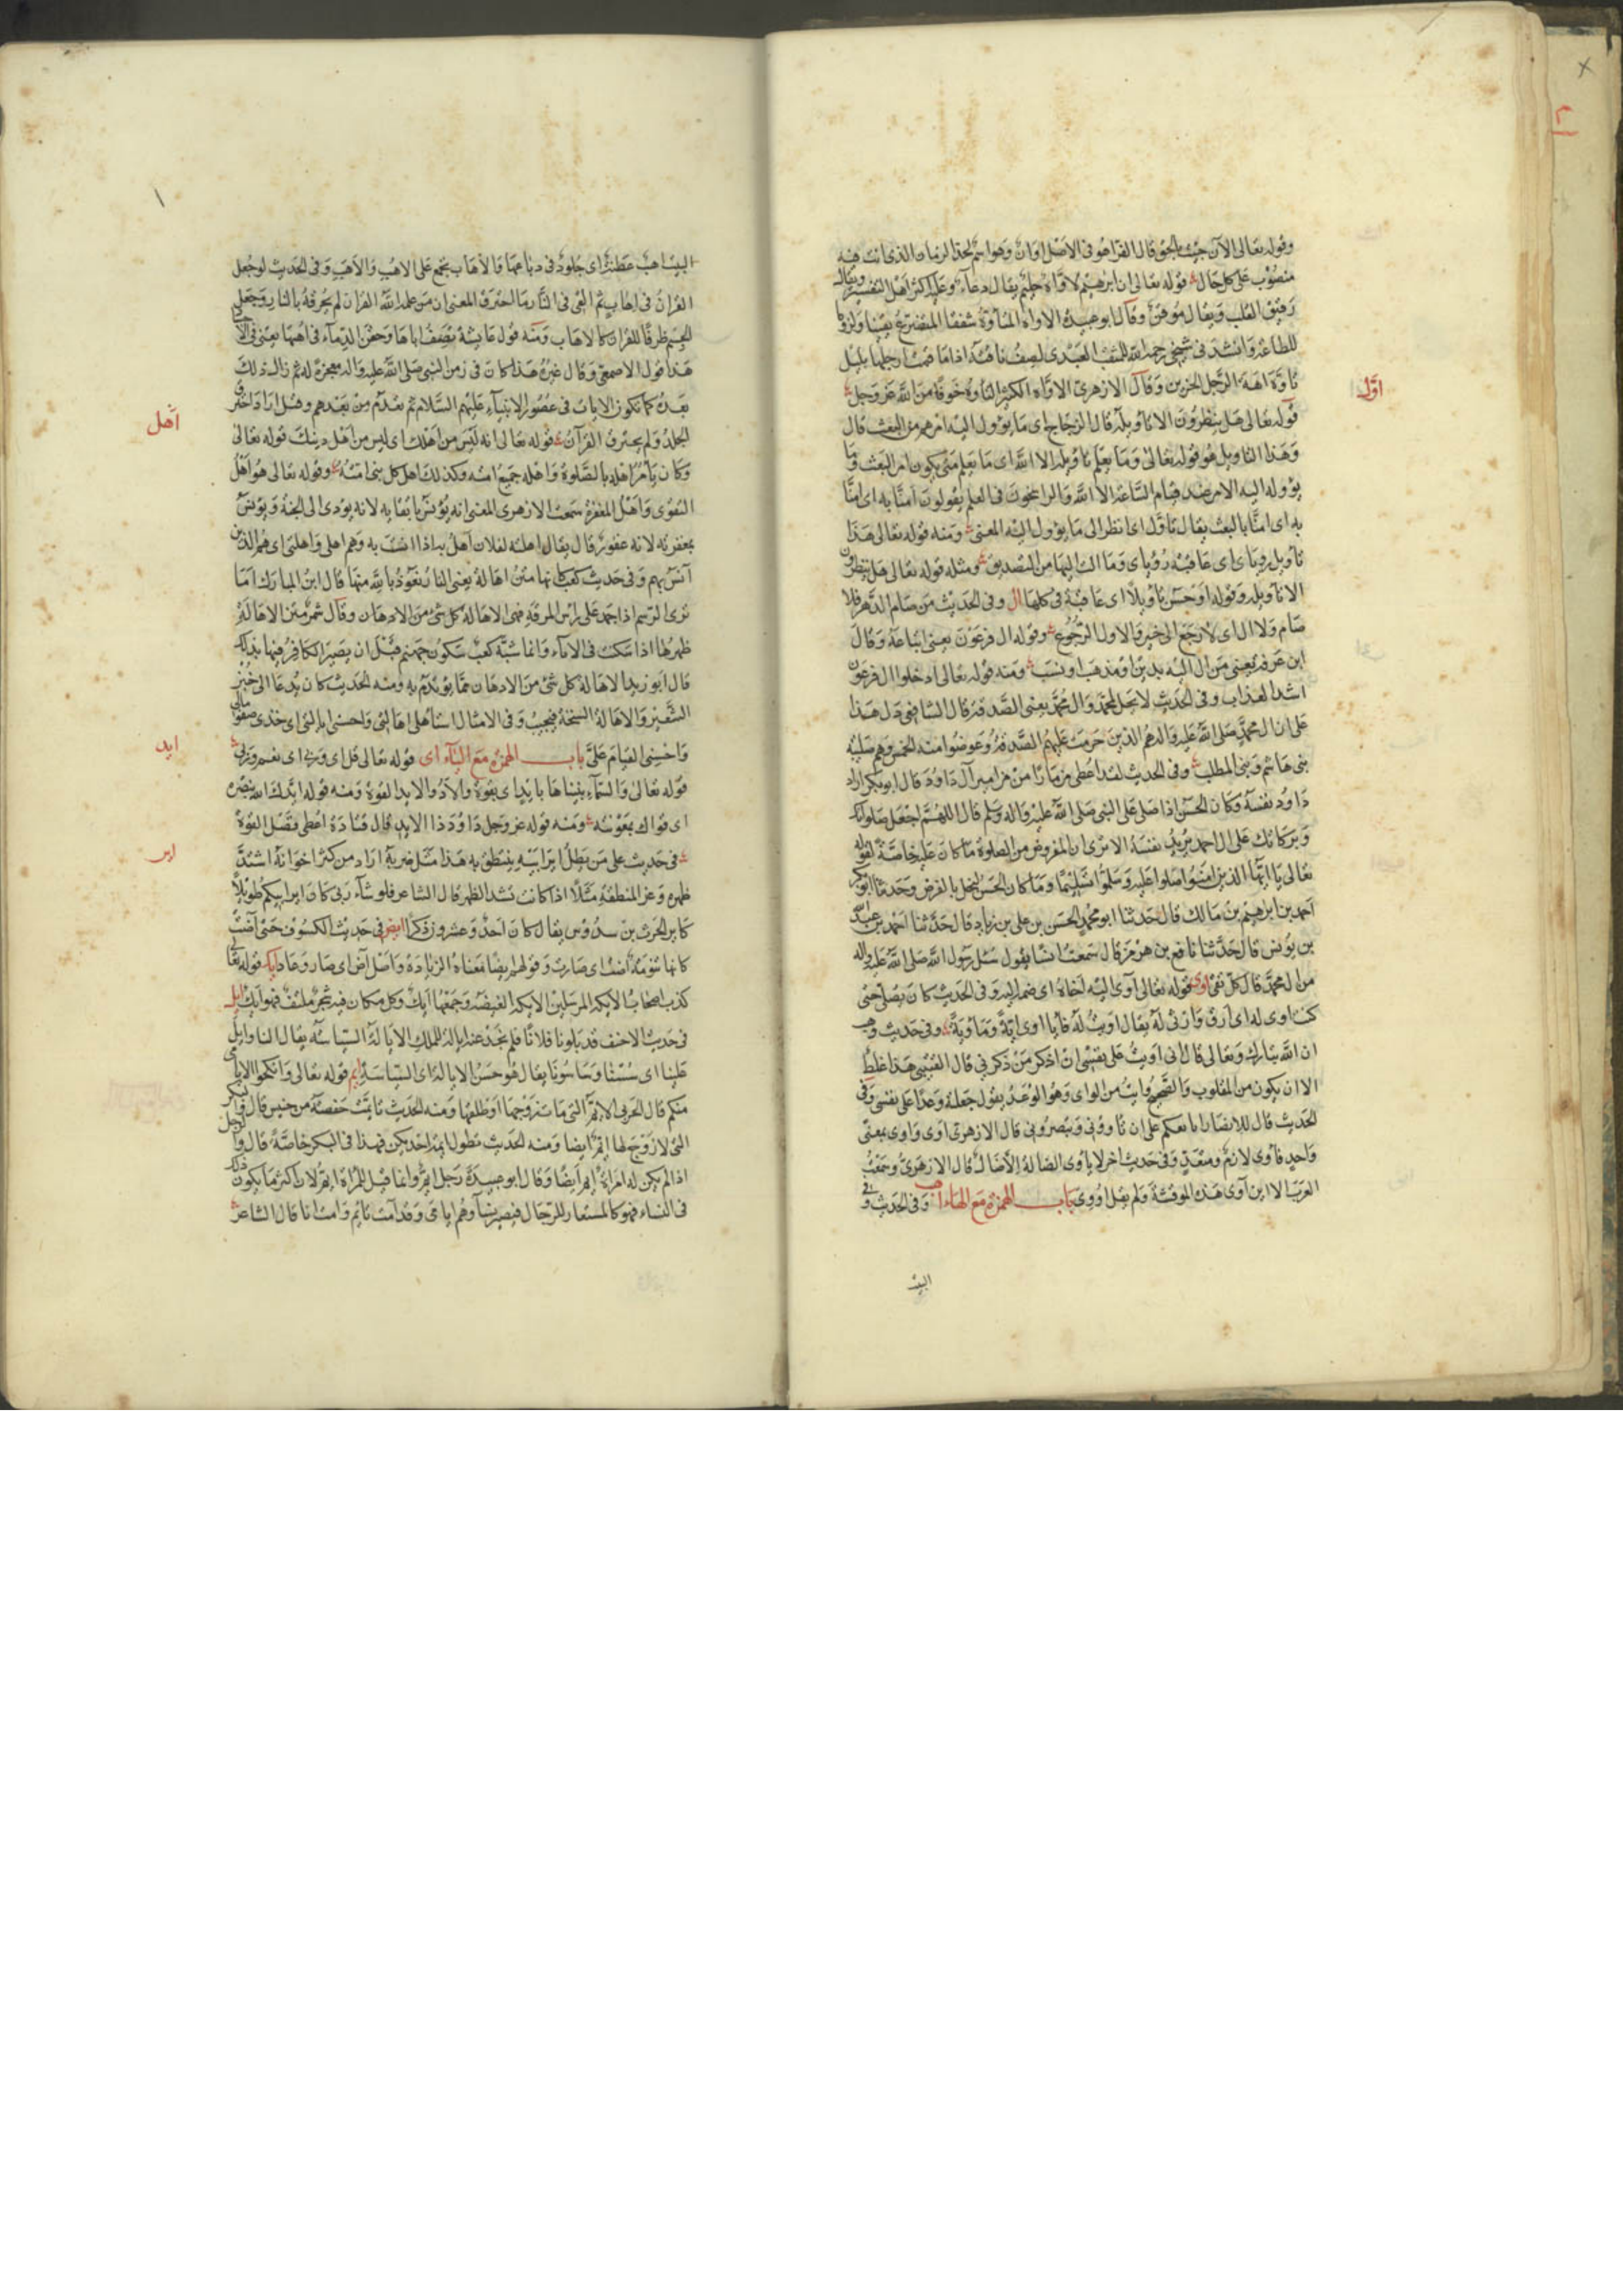 وقوله تعالى الآن جئت بالحق قال الفرا هو فى الاصل اوان وهو اسم لحد الزمان الذى انت فيه
منصوب على كل حال قوله تعالى ان ابرهيم لاواه حليم يقال دعاء وعليه اكثر اهل التفسير ويقال
رقيق القلب ويقال موقن وقال ابو عبيدة الاواه المتأوه شفقا المتضرع يقينا ولزوما
للطاعة وانشد فى شيخى رحمه الله للمثقب العبدى يصف ناقته اذا ما قمت ارحلها بليل
تأوه آهة الرجل الحزين وقال الازهرى الاواه الكثير التأوه خوفا من الله عز وجل
اوّل
قوله تعالى هل ينظرون الا تأويله قال الزجاج اى ما يؤول اليه امرهم من البعث قال
وهذا التاويل هو قوله تعالى وما يعلم تأويله الا الله اى ما يعلم متى يكون امر البعث وما
يؤول اليه الامر عند قيام الساعة الا الله والراسخون فى العلم يقولون آمنا به اى امنا
به اى امنا بالبعث يقال تأول اى انظر الى ما يؤول اليه المعنى ومنه قوله تعالى هذا
تأويل رؤياى اى عاقبة رؤياى وما آلت اليها من التصديق ومثله قوله تعالى هل ينظرون
الا تأويله وقوله احسن تأويلا اى عاقبة فى كلها ال وفى الحديث من صام الدهر فلا
صام ولا ال اى لا رجع الى خير والاول الرجوع وقوله ال فرعون يعنى اتباعه وقال
ابن عرفة يعنى من آل اليه بدين او مذهب او نسب ومنه قوله تعالى ادخلوا ال فرعون
اشد العذاب وفى الحديث لا تحل لمحمد وآل محمد يعنى الصدقة قال الشافعى دل هذا
على ان ال محمد صلى الله عليه واله هم الذين حرمت عليهم الصدقة وعوضوا منه الخمس وهم صلبية
بنى هاشم وبنى المطلب وفى الحديث لقد اعطى مزمارا من مزامير آل داود قال ابو بكر اراد
داود نفسه وكان الحسن اذا صلى على النبى صلى الله عليه واله وسلم قال اللهم اجعل صلواتك
وبركاتك على ال احمد يريد نفسه الا ترى ان المفروض من الصلوة ما كان عليه خاصة لقوله
تعالى يا ايها الذين امنوا صلوا عليه وسلموا تسليما وما كان الحسن ليخل بالفرض وحدثنا ابو بكر
احمد بن ابرهيم بن مالك قال حدثنا ابو محمد الحسن بن على بن زياد قال حدثنا احمد بن عبد الله
بن يونس قال حدثنا نافع بن هرمز قال سمعت انسا يقول سئل رسول الله صلى الله عليه واله
من ال محمد قال كل تقى اوى قوله تعالى آوى اليه اخاه اى ضم اليه وفى الحديث كان يصلى حتى
كنت اوى له اى ارق وارثى له يقال اويت له فانا اوى اية وماوية وفى حديث وهب
ان الله تبارك وتعالى قال انى اويت على نفسى ان اذكر من ذكرنى قال القتيبى هذا غلط
الا ان يكون من المقلوب والصحيح وايت من الوأى وهو الوعد يقول جعلته وعدا على نفسى وفى
الحديث قال للانصار ابايعكم على ان تأوونى وتنصرونى قال الازهرى اوى واوى بمعنى
واحد فآوى لازم ومتعد وفى حديث اخر لا يأوى الضالة الا ضال قال الازهرى وسمعت
العرب
باب الهمزة مع الهاء اهب وفى الحديث وفى
البيت
البيت اهب عطنة اى جلود فى دباغها والاهاب يجمع على الاهب والاهب وفى الحديث لو جعل
القرآن فى اهاب ثم القى فى النار ما احترق المعنى ان من علمه الله القران لم يحرقه بالنار وجعل
الجسم ظرفا للقران كالاهاب ومنه قول عائشة تصف اباها وحقن الدماء فى اهبها يعنى فى الاجساد
هذا قول الاصمعى وقال غيره هذا كان فى زمن النبى صلى الله عليه واله معجزة له ثم زال ذلك
بعده كما تكون الايات فى عصور الانبياء عليهم السلام ثم تعدم من بعدهم وقيل اراد احترق
اهل
الجلد ولم يحترق القرآن قوله تعالى انه ليس من اهلك اى ليس من اهل دينك قوله تعالى
وكان يأمر اهله بالصلوة واهله جميع امته وكذلك اهل كل نبى امته وقوله تعالى هو اهل
التقوى واهل المغفرة سمعت الازهرى المعنى انه يؤنس باتقائه لانه يؤدى الى الجنة ويؤنس
بمغفرته لانه غفور قال يقال اهلت لفلان آهل به اذا انست به وهم اهلى واهلتى اى هم الذين
آنس بهم وفى حديث كعب كانها متن اهالة يعنى النار نعوذ بالله منها قال ابن المبارك اما
ترى الدسم اذا جمد على راس المرقة فهى الاهالة كل شئ من الادهان وقال شمر متن الاهالة
ظهرها اذا سكنت فى الاناء وانما شبه كعب سكون جهنم قبل ان يصير الكافر فيها بذلك
قال ابو زيد الاهالة كل شئ من الادهان مما يؤتدم به ومنه الحديث كان يدعا الى خبز
الشعير والاهالة السنخة فيجيب وفى الامثال استأهلى اهالتى واحسنى ايالتى اى خذى صفو مالى
ايد
واحسنى القيام على باب الهمزة مع الياء اى قوله تعالى قل اى وربى اى نعم وربى
قوله تعالى والسماء بنيناها بايد اى بقوة والاد والايد القوة ومنه قوله ايدك الله بنصره
اى قواك بمعونته ومنه قوله عز وجل داود ذا الايد قال قتادة اعطى فضل القوة
اير
فى حديث على من يطل اير ابيه ينتطق به هذا مثل ضربه اراد من كثر اخوانه اشتد
ظهره وعز المنطقة مثلا اذا كانت تشد الظهر قال الشاعر فلو شاء ربى كان اير ابيكم طويلا
كاير الحرث بن سدوس يقال كان احد وعشرون ذكرا ايض فى حديث الكسوف حتى آضت
كانها تنومة آضت اى صارت وقولهم ايضا معناه الزيادة واصل آض اى صار وعاد ايك قوله تعالى
كذب اصحاب الايكة المرسلين الايكة الغيضة وجمعها ايك وكل مكان فيه شجر ملتف فهو ايك ايل
فى حديث الاحنف قد بلونا فلانا فلم نجد عنده ايالة للملك الايالة السياسة يقال النا وايل
علينا اى سسنا وساسونا يقال هو حسن الايالة اى السياسة ايم قوله تعالى وانكحوا الايامى
منكم قال الحربى الايم التى مات زوجها او طلقها ومنه الحديث تأيمت حفصة من خنيس قال والبكر
التى لا زوج لها ايم ايضا ومنه الحديث تطول ايمة احديكن فهذا فى البكر خاصة قال والرجل
اذا لم يكن له امرأة ايم ايضا وقال ابو عبيدة رجل ايم وانما قيل للمراة ايم لان اكثر ما يكون ذلك
فى النساء فهو كالمستعار للرجال
قال الشاعر